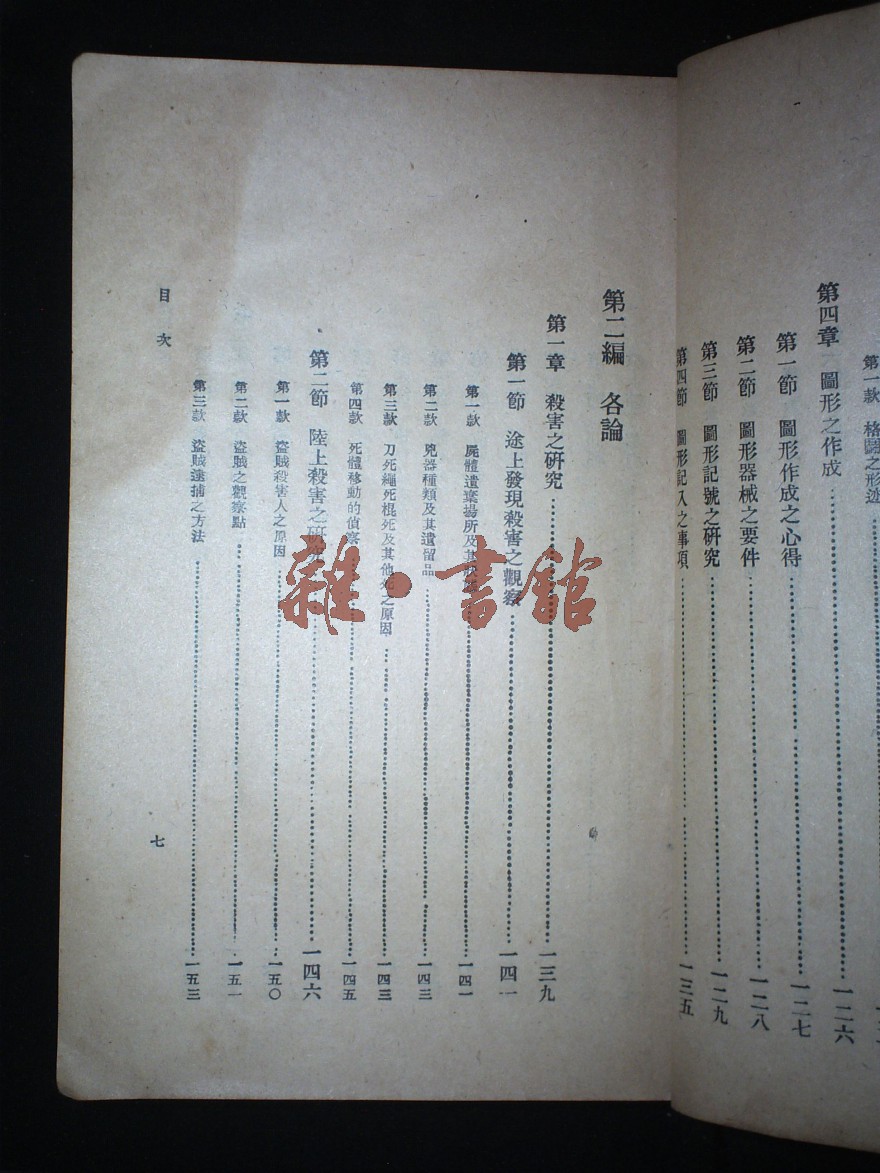 第一款 格鬪之形迹
第四章 圖形之作成 一二六
第一節 圖形作成之心得 一二七
第二節 圖形器械之要件 一二八
第三節 圖形記號之研究 一二九
第四節 圖形記入之事項 一三五
第二編 各論
第一章 殺害之研究 一三九
第一節 途上發現殺害之觀察 一四一
第一款 屍體遺棄場所及其 一四一
第二款 兇器種類及其遺留品 一四三
第三款 刀死繩死棍死及其他死之原因 一四三
第四款 死體移動的偵察 一四五
第二節 陸上殺害之研究 一四六
第一款 盜賊殺害人之原因 一五〇
第二款 盜賊之觀察點 一五一
第三款 盜賊逮捕之方法 一五三
目次
七
雜·書館